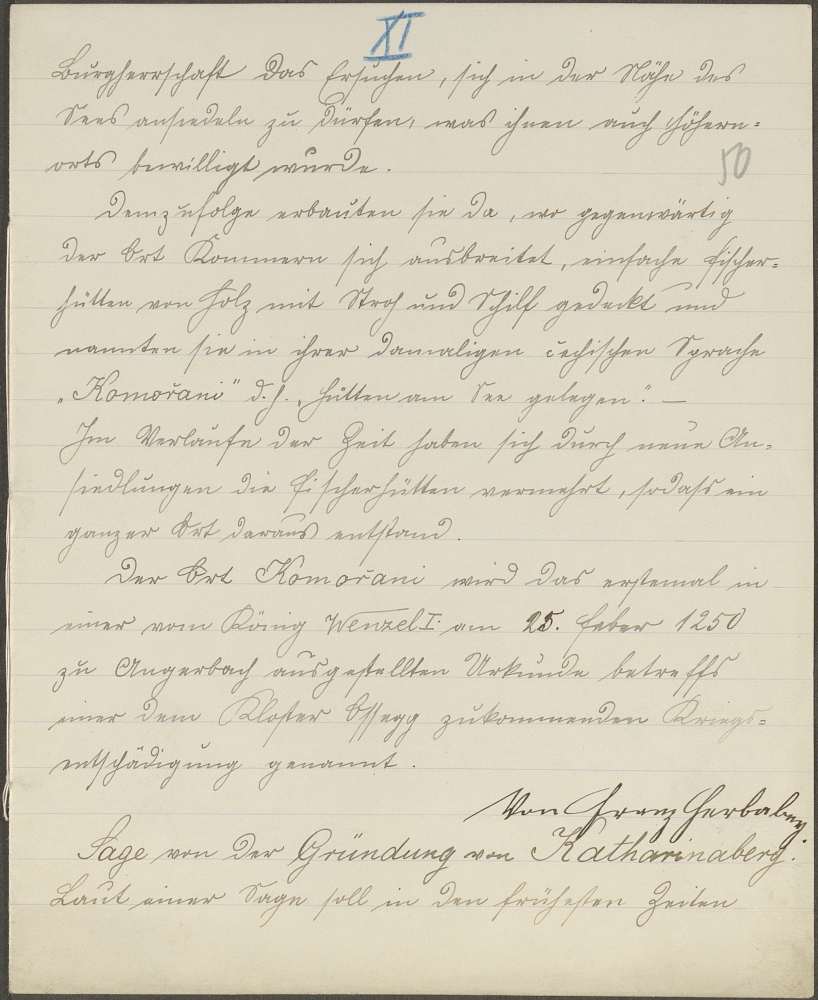 XI
Burgherrschaft das Ersuchen, sich in der Nähe des
Sees ansiedeln zu dürfen, was ihnen auch höhern=
orts bewilligt wurde.
50
Demzufolge erbauten sie da, wo gegenwärtig
der Ort Kommern sich ausbreitet, einfache Fischer=
hütten von Holz mit Stroh und Schilf gedeckt und
nannten sie in ihrer damaligen čechischen Sprache
„Komořani" d. h. „Hütten am See gelegen". —
Im Verlaufe der Zeit haben sich durch neue An=
siedlungen die Fischerhütten vermehrt, sodass ein
ganzer Ort daraus entstand.
Der Ort Komořani wird das erstemal in
einer vom König Wenzel I. am 25. Feber 1250
zu Angerbach ausgestellten Urkunde betreffs
einer dem Kloster Ossegg zukommenden Kriegs=
entschädigung genannt.
Von Franz Herbabey.
Sage von der Gründung von Katharinaberg.
Laut einer Sage soll in den frühesten Zeiten